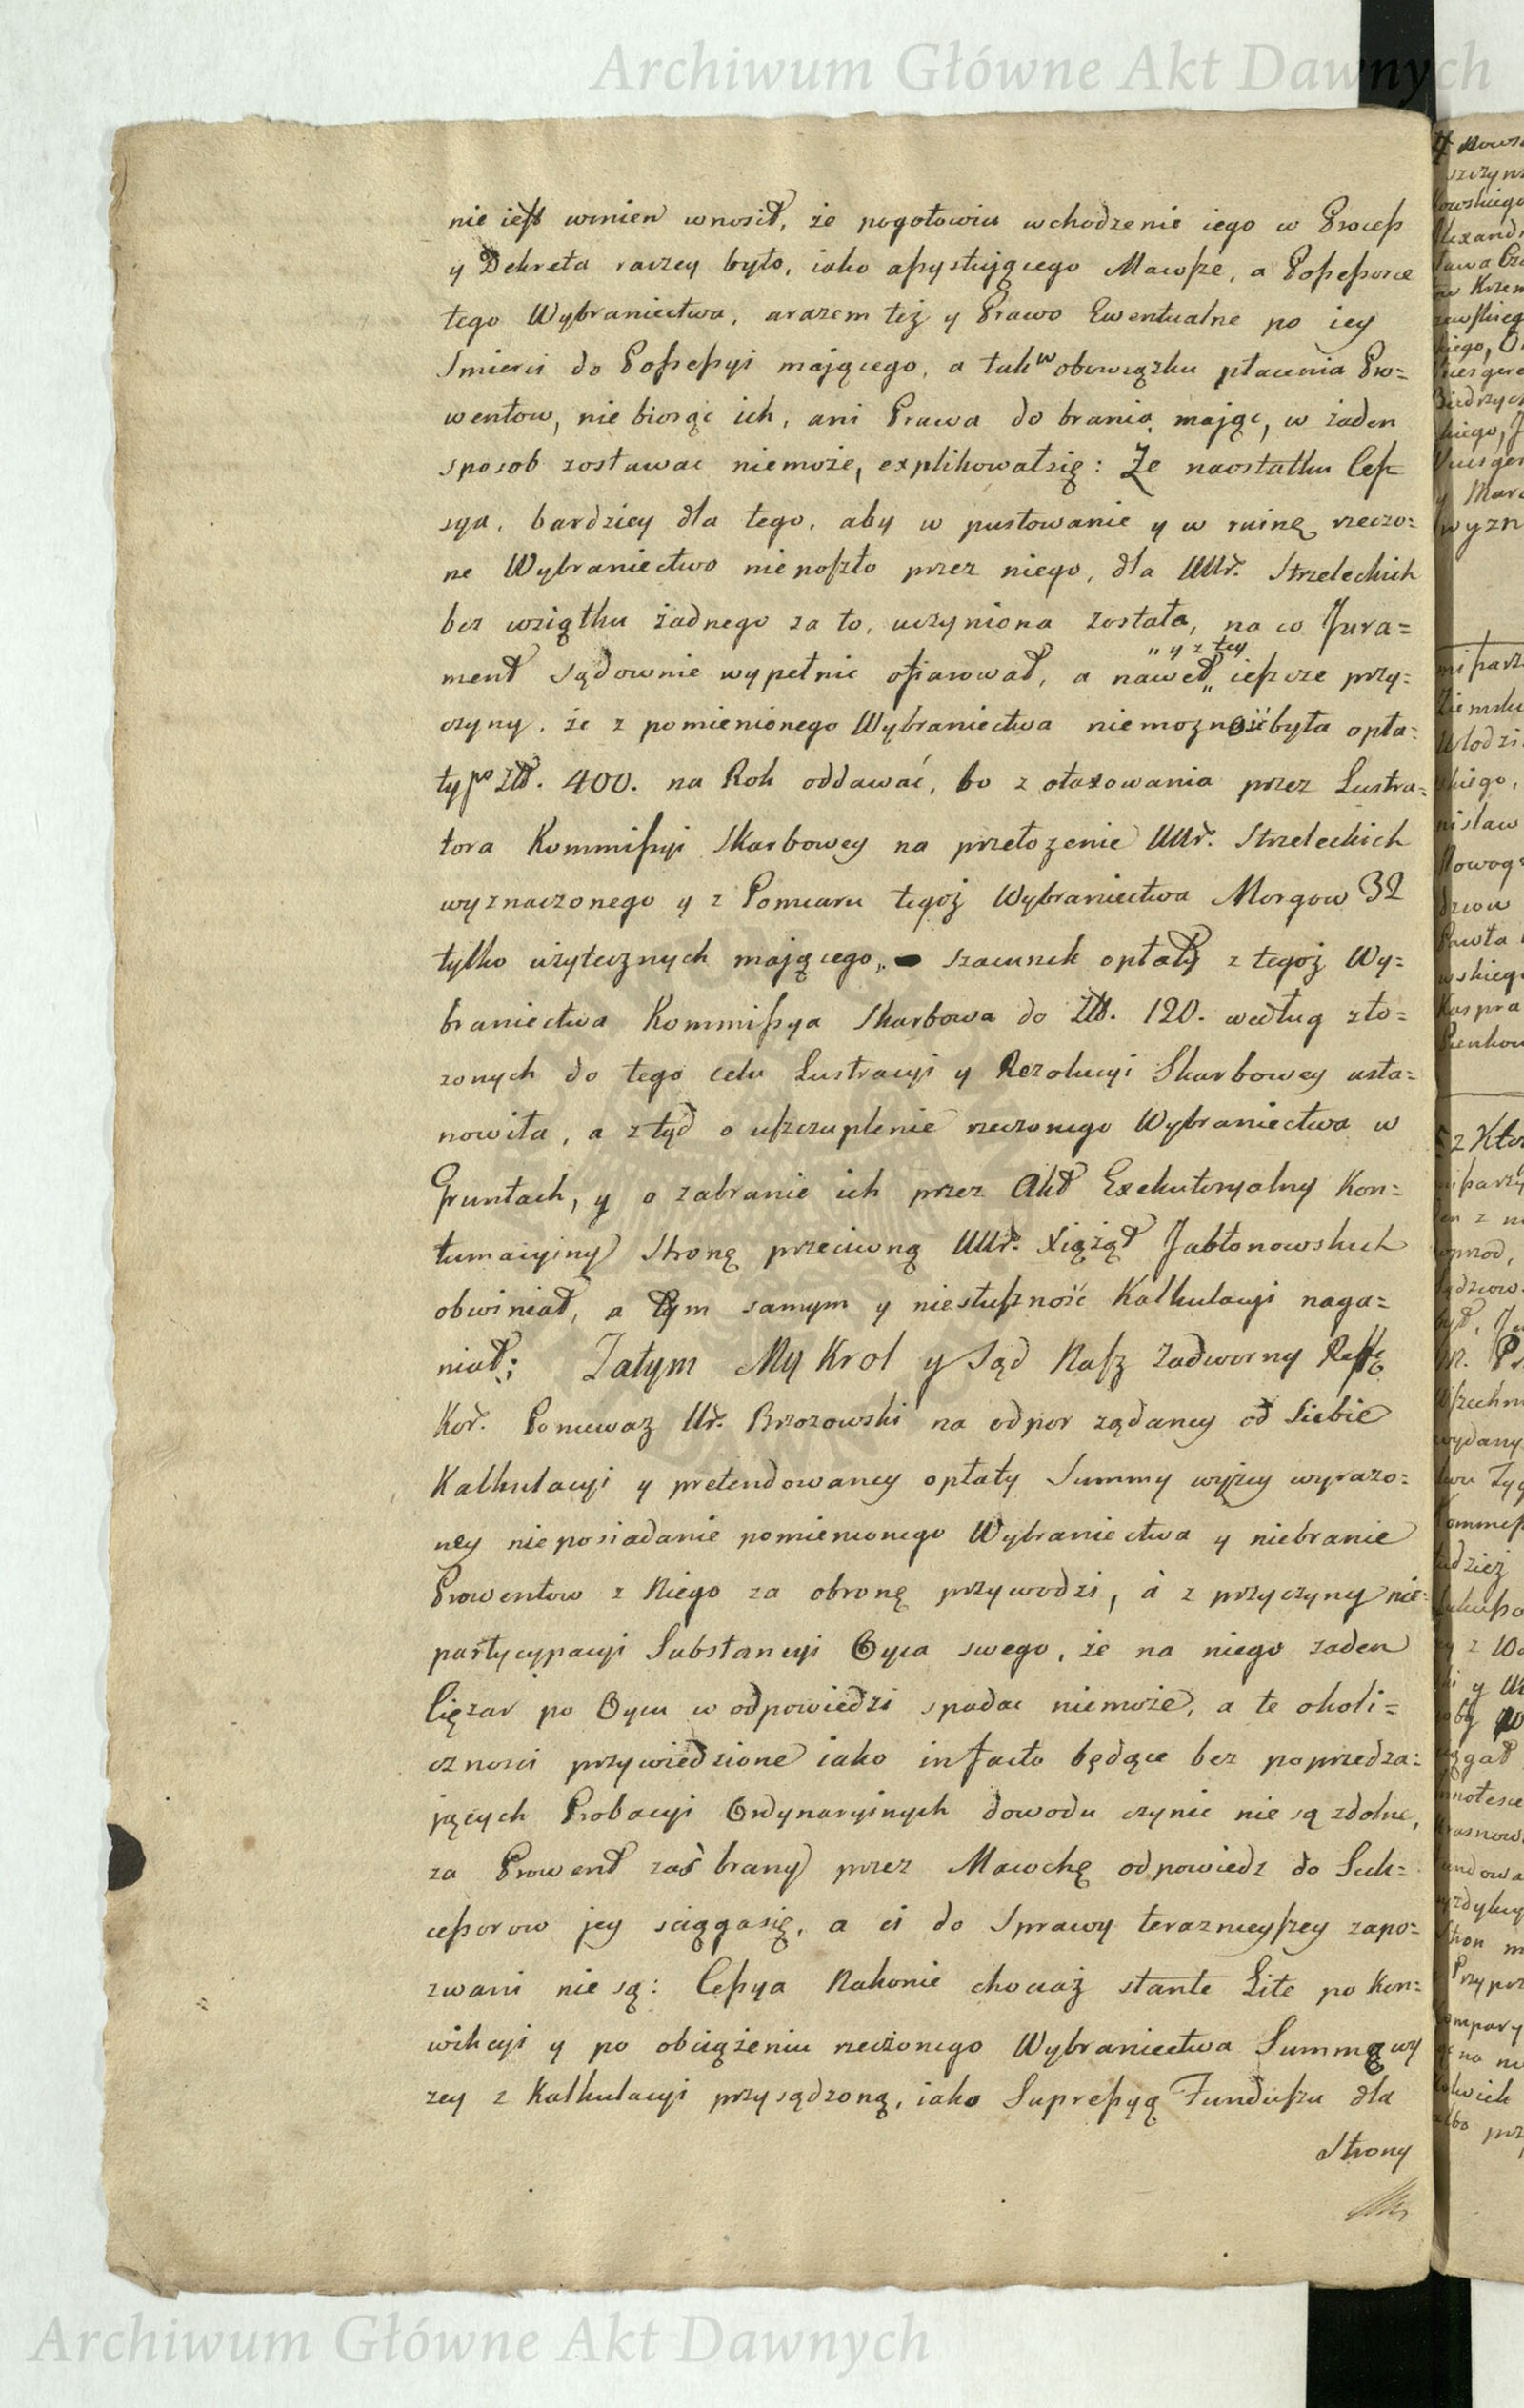 Archiwum Główne Akt Dawnych
nie iest winien wnosił, że pogotowiu wchodzenie iego w Process
y Dekreta raczey było, iako assystuiącego Mawsze, a Possessorce
tego Wybraniectwa, arazem też y Prawo Ewentualne po iey
Smierci do Possessyi maiącego, a tak w obowiązku płacenia Pro=
wentow, nie biorąc ich, ani Prawa do brania maiąc, w żaden
sposob zostawac niemoże, explikowałsię: Że naostatku Ces=
sya, bardziey dla tego, aby w pustowanie y w ruinę rzeczo=
ne Wybraniectwo nieposzło przez niego, dla UUr. Strzeleckich
bez wziątku żadnego za to, uczyniona została, na co Jura=
ment sądownie wypełnic ofiarował, a nawet „ y z tey „ ieszcze przy=
czyny, że z pomienionego Wybraniectwa niemozność była opła=
ty po Złł. 400. na Rok oddawać, bo z otaxowania przez Lustra=
tora Kommissyi Skarbowey na przełożenie UUr. Strzeleckich
wyznaczonego y z Pomiaru tegoż Wybraniectwa Morgow 32
tylko użytecznych maiącego, szacunek opłaty z tegoż Wy=
braniectwa Kommissya Skarbowa do Złł. 120. według zło=
zonych do tego celu Lustracyi y Rezolucyi Skarbowey usta=
nowiła, a ztąd o uszczuplenie rzeczonego Wybraniectwa w
Gruntach, y o zabranie ich przez Akt Exekutoryalny Kon=
tumacyiny Stronę przeciwną UUr. Xiążąt Jabłonowskich
obwiniał, a tym samym y niesłuszność Kalkulacyi naga=
niał; Zatym My Krol y Sąd Nasz Zadworny Reffo
Kor. Poniewaz Ur. Brzozowski na odpor ządaney od Siebie
Kalkulacyi y pretendowaney opłaty Summy wyżey wyrazo=
ney nieposiadanie pomienionego Wybraniectwa y niebranie
Prowentow z Niego za obronę przywodzi, à z przyczyny nie=
partycypacyi Substancyi Oyca swego, że na niego zaden
Ciężar po Oycu w odpowiedzi spadac niemoże, a te okoli=
cznosci przywiedzione iako in facto będące bez poprzedza=
jących Probacyi Ordynaryinych dowodu czynic nie są zdolne,
za Prowent zaś brany przez Mawchę odpowiedz do Suk=
cessorow jey sciągasię, a ci do Sprawy teraznieyszey zapo=
zwani nie są: Cessya Nakonie chociaż stante Lite po Kon=
wikcyi y po obciążeniu rzeczonego Wybraniectwa Summą wy
zey z Kalkulacyi przysądzoną, iako Supressyą Funduszu dla
Strony
Archiwum Główne Akt Dawnych